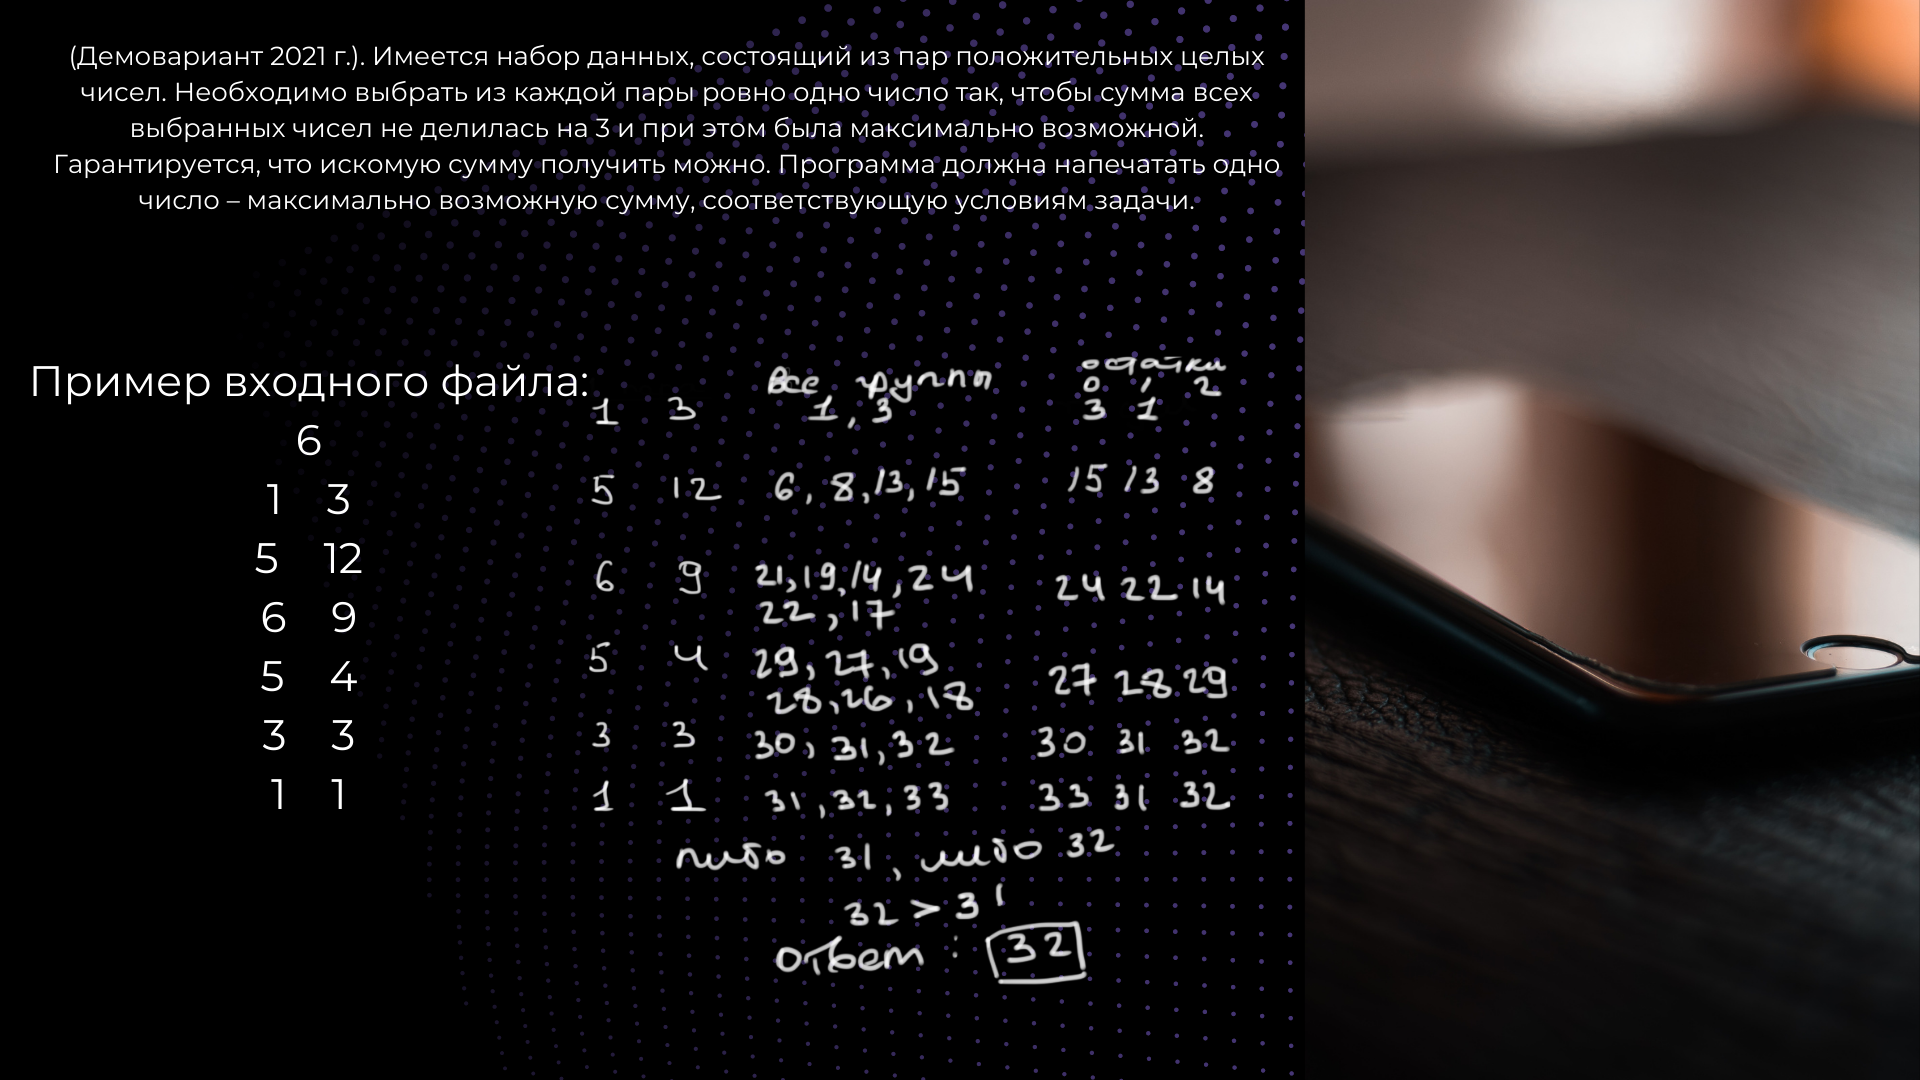 (Демовариант 2021 г.). Имеется набор данных, состоящий из пар положительных целых
чисел. Необходимо выбрать из каждой пары ровно одно число так, чтобы сумма всех
выбранных чисел не делилась на 3 и при этом была максимально возможной.
Гарантируется, что искомую сумму получить можно. Программа должна напечатать одно
число – максимально возможную сумму, соответствующую условиям задачи.
Пример входного файла:
6
1 3
5 12
6 9
5 4
3 3
1 1
Все группы остатки
0 1 2
1 3 1, 3 3 1
5 12 6, 8, 13, 15 15 13 8
6 9 21, 19, 14, 24 24 22 14
22, 17
5 4 29, 27, 19 27 28 29
28, 26, 18
3 3 30, 31, 32 30 31 32
1 1 31, 32, 33 33 31 32
либо 31, либо 32
32 > 31
ответ: 32